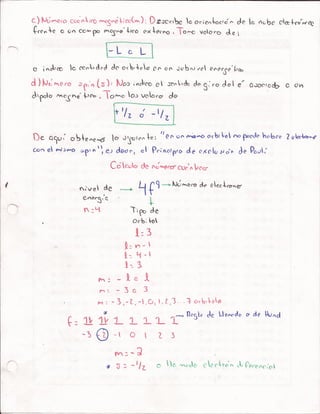 c) Número cuántico magnético (m): Describe la orientación de la nube electrónica
frente a un campo magnético externo. Toma valores de:
-L c L
o indica la cantidad de orbitales en un subnivel energético
d) Número spin (s): Nos indica el sentido de giro del e⁻ asociado a un
dipolo magnético. Toma los valores de
+1/2 ó -1/2
De aquí obtenemos lo siguiente: "en un mismo orbital no puede haber 2 electrones
con el mismo spin", es decir, el Principio de exclusión de Pauli
Cálculo de número cuántico
nivel de → 4f⁹ → Número de electrones
energía
n=4 Tipo de
orbital
l=3
l= n-1
l= 4-1
l= 3
m: -l c l
m: -3 c 3
m: -3,-2,-1,0,1,2,3... 7 orbitales
→ Regla de Llenado o de Hund
f: 1↓ 1↓ 1 1 1 1 1
-3 -2 -1 0 1 2 3
m= -2
* s= -1/2 o llamado electrón diferencial